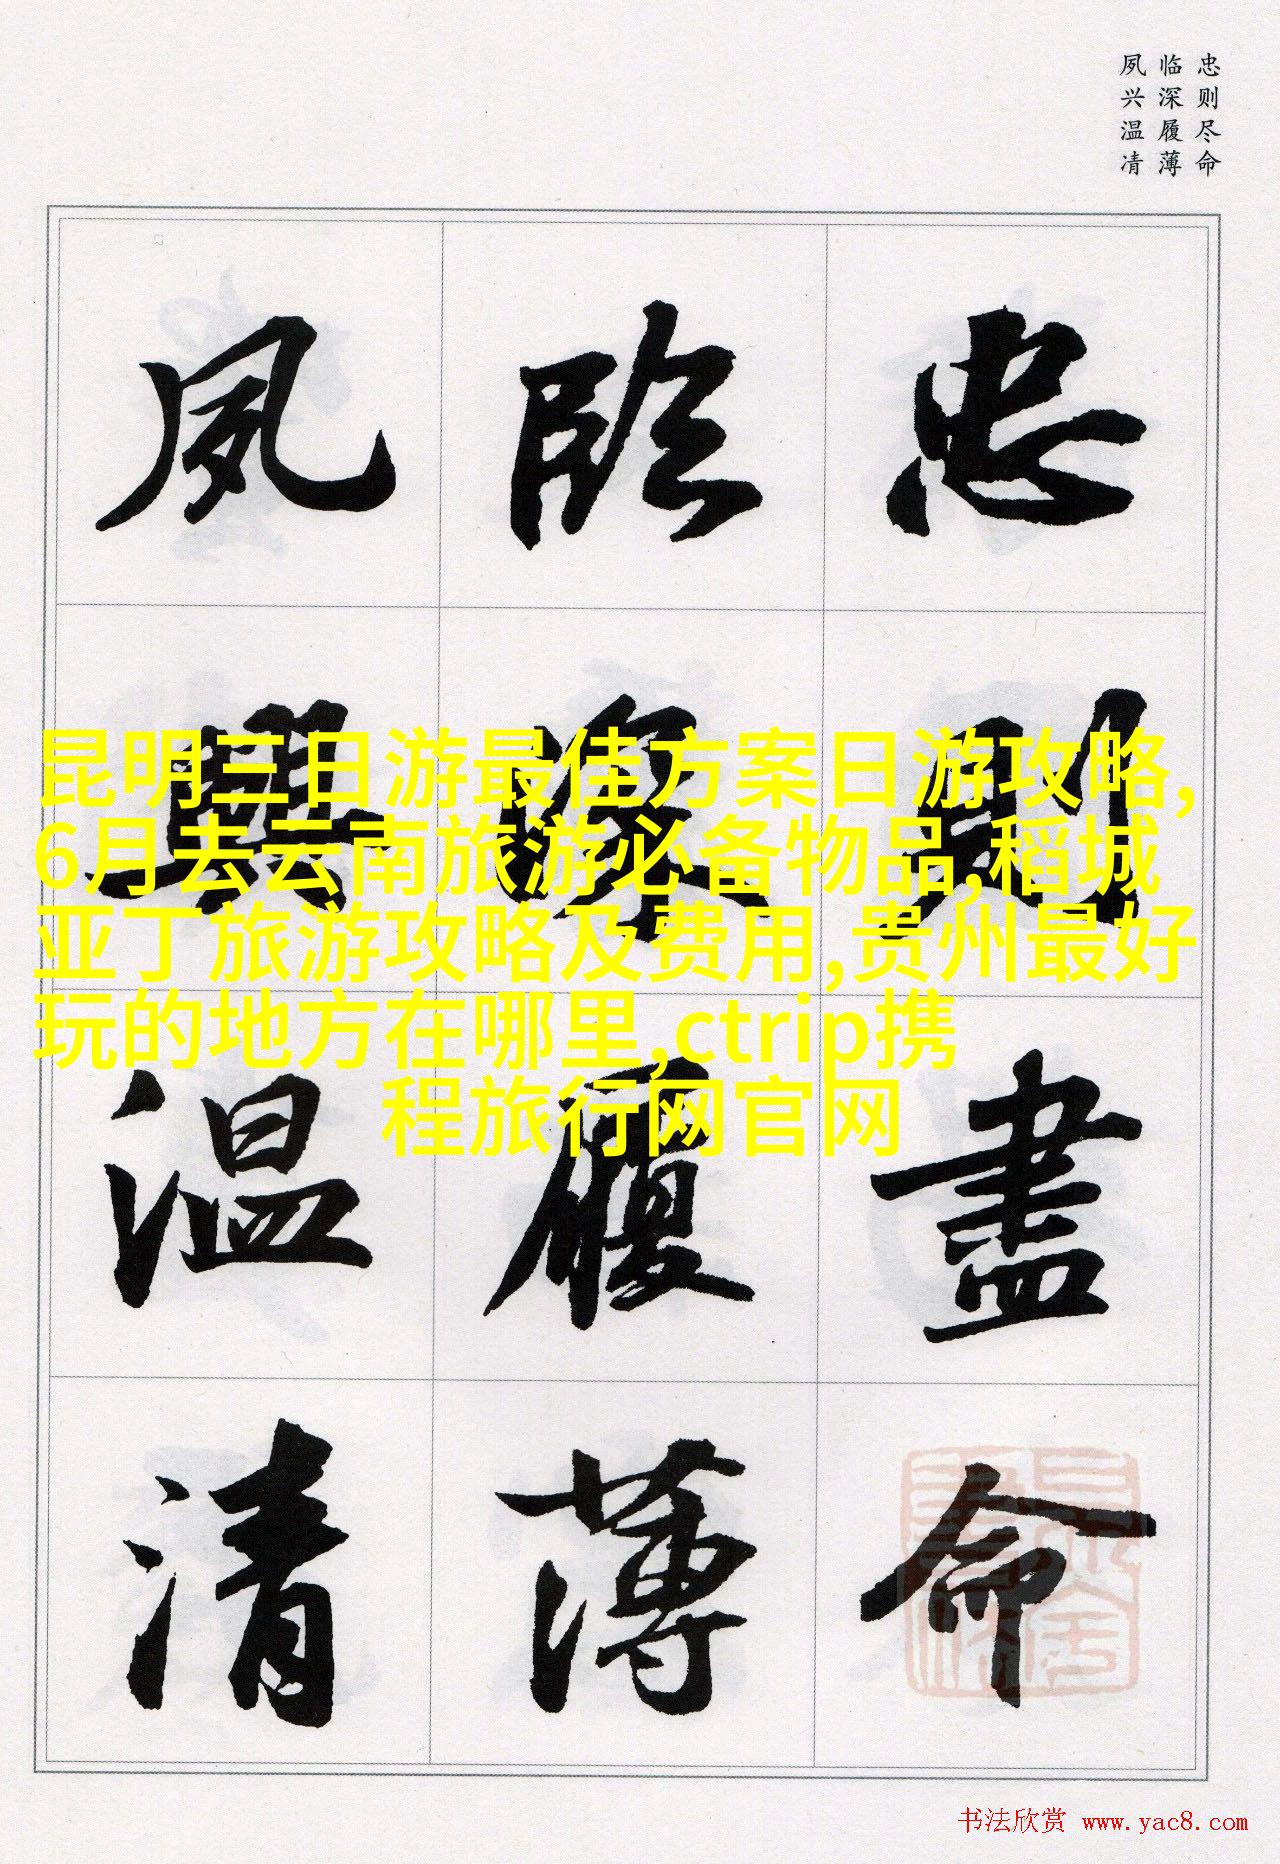 忠则尽命
临深履薄
夙兴温凊
忠則盡命
臨深履薄
夙興温清
昆明三日游最佳方案日游攻略,
6月去云南旅游必备物品,稻城
亚丁旅游攻略及费用,贵州最好
玩的地方在哪里,ctrip携
程旅行网官网
书法欣赏 www.yac8.com